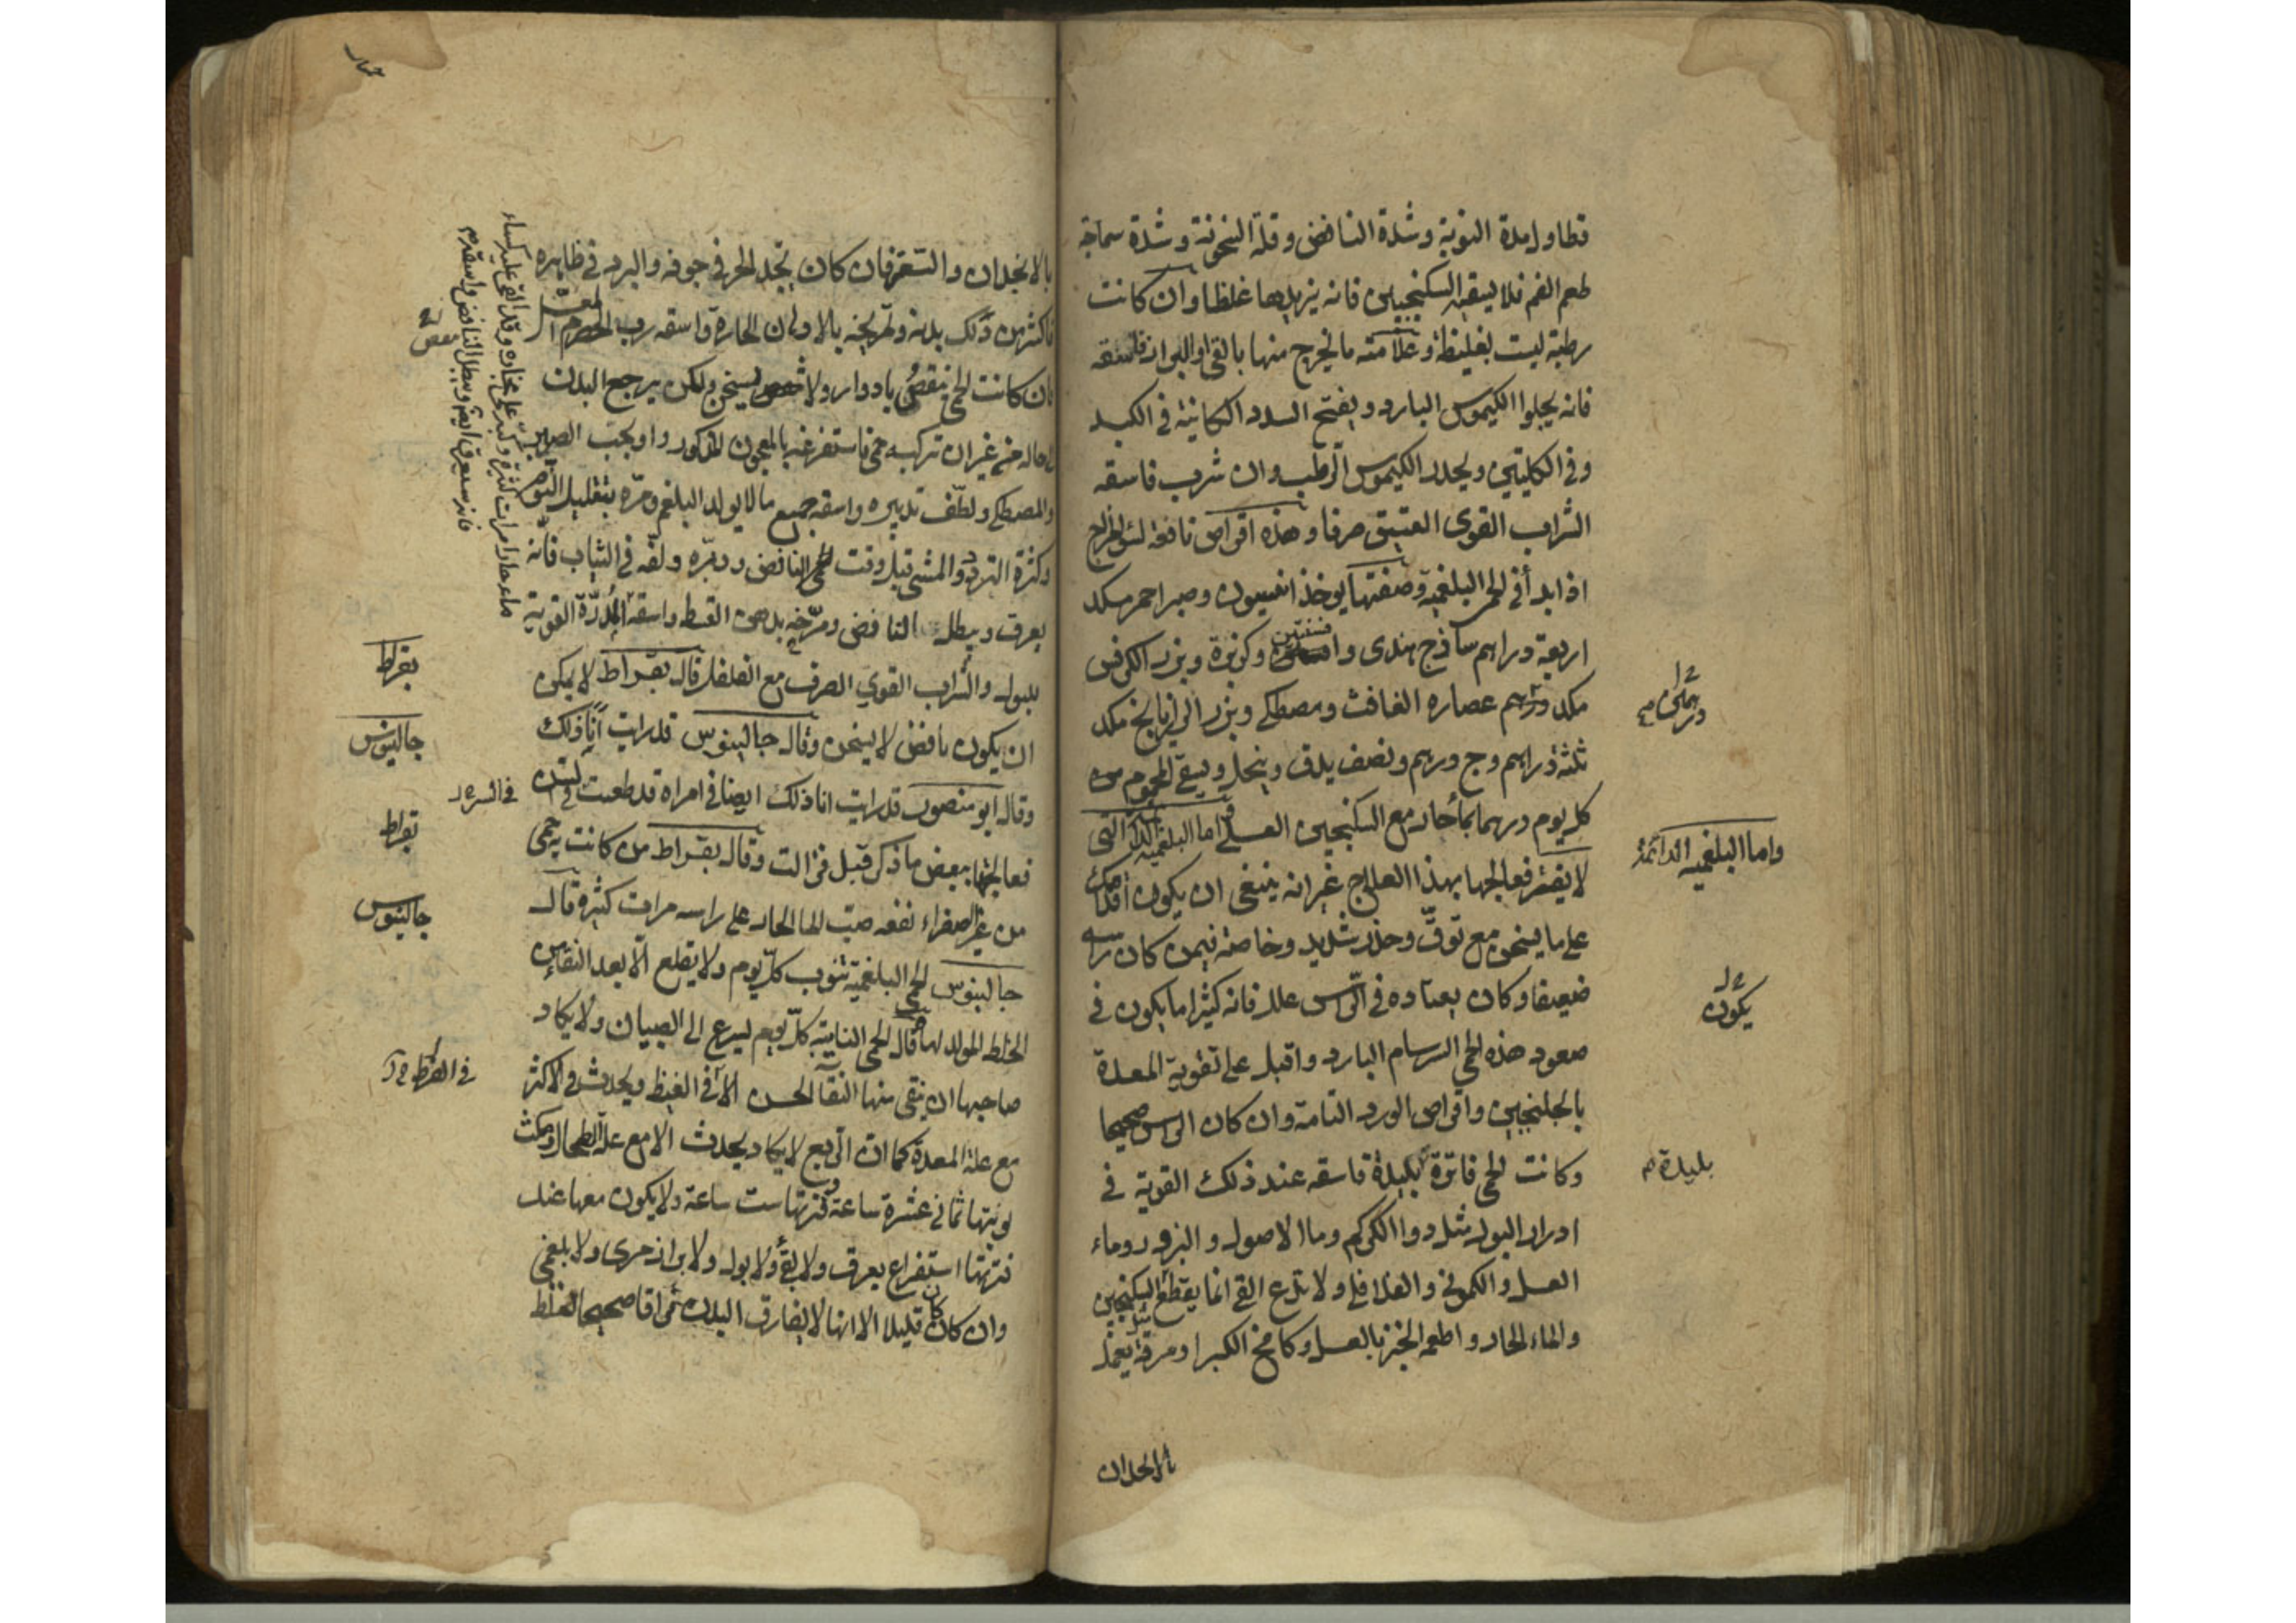 قطاول مدة النوبة وشدة النافض وقلة السخونة وشدة سماجة
طعم الفم فلا يسقيه السكنجبين فانه يزيدها غلظا وان كانت
رطبة ليت بغليظة وعلامته ما يخرج منها بالقي او البراز فاسقه
فانه يجلوا الكيموس البارد ويفتح السدد الكاينة في الكبد
وفي الكليتين ويحدر الكيموس الرطب وان شرب فاسقه
الشراب القوى العتيق صرفا وهذه اقراص نافعة
اذا بدأ في الحمى البلغمية وصفتها يوخذ انيسون وصبر احمر مكد
اربعة دراهم ساذج هندى وافسنتين وكزبرة وبزر الكرفس
مكد درهم عصاره الغافث ومصطكي وبزر الرازيانج مكد
ثلثة دراهم وج درهم ونصف يدق وينخل ويسقى المحموم منه
كل يوم درهما بماء حار مع السكنجبين العسلي واما البلغمية الدائمة التى
لا يفتر فعالجها بهذا العلاج غير انه ينبغى ان يكون اقدامك
على ما يسخن مع توقّ وحذر شديد وخاصة فيمن كان راسه
ضعيفا وكان يعتاده في الراس علل فانه كثيرا ما يكون في
صعود هذه الحمى السرسام البارد واقبل على تقوية المعدة
بالجلنجبين واقراص الورد التامة وان كان الراس صحيحا
وكانت الحمى فاترة بليدة فاسقه عند ذلك القوية في
ادرار البول مثل دوا الكركم وما الاصول والبزور وماء
العسل والكمونى والفلافلى ولا تدع القي انما يقطع السكنجبين
والماء الحار واطعمه الخبز بالعسل وكامخ الكبر او مرقة يعمل
درهمان م
واما البلغميه الدائمة
يكون
بليدة م
بالانجدان
بالانجدان والستعرفان كان يجد الحر في جوفه والبرد في ظاهره
فاكثر من دلك بدنه وتمريخه بالادهان الحارة واسقه رب الحصرم
فان كانت الحمى ينقضى بادوار ولا يسخن ولكن يرجع البدن
الى حاله من غير ان تركبه حمى فاستفرغه بالمعجون المذكور واوجب الصبر
والمصطكي ولطّف تدبيره واسقه جميع ما لا يولد البلغم ومره بتقليل النوم
وكثرة التردد والمشى قبل وقت النافض ودثره ولفه في الثياب فانه
يعرق ويبطل النافض ومرّخه بدهن القسط واسقه المدرّة القوية
للبول والشراب القوي الصرف مع الفلفل قال بقراط لا يمكن
ان يكون نافض لا يسخن وقال جالينوس قد رايت انا ذلك
وقال ابو منصور قد رايت انا ذلك ايضا في امراه قد طعنت في السن
فعالجتها ببعض ما ذكر قبل فزالت وقال بقراط من كانت به حمى
من غير الصفراء نفعه صب الما الحار على راسه مرات كثيرة قال
جالينوس الحمى البلغمية تنوب كل يوم ولا يقلع الا بعد النقاء من
الخلط المولد لها وقال الحمى النايبة كل يوم يسرع الى الصبيان ولا يكاد
صاحبها ان ينقى منها النقا الحسن الا في الغبظ ويحدث في الاكثر
مع علة المعدة كما ان الربع لا يكاد يحدث الا مع علة الطحال ومكث
نوبتها ثمانى عشرة ساعة وفترتها ست ساعة ولا يكون معها عند
فترتها استفراغ بعرق ولا بقي ولا بول ولا براز مرى ولا بلغمى
وان كان قليلا الا انها لا يفارق البدن فراقا صحيحا لغلظ
بقراط
جالينوس
بقراط
جالينوس